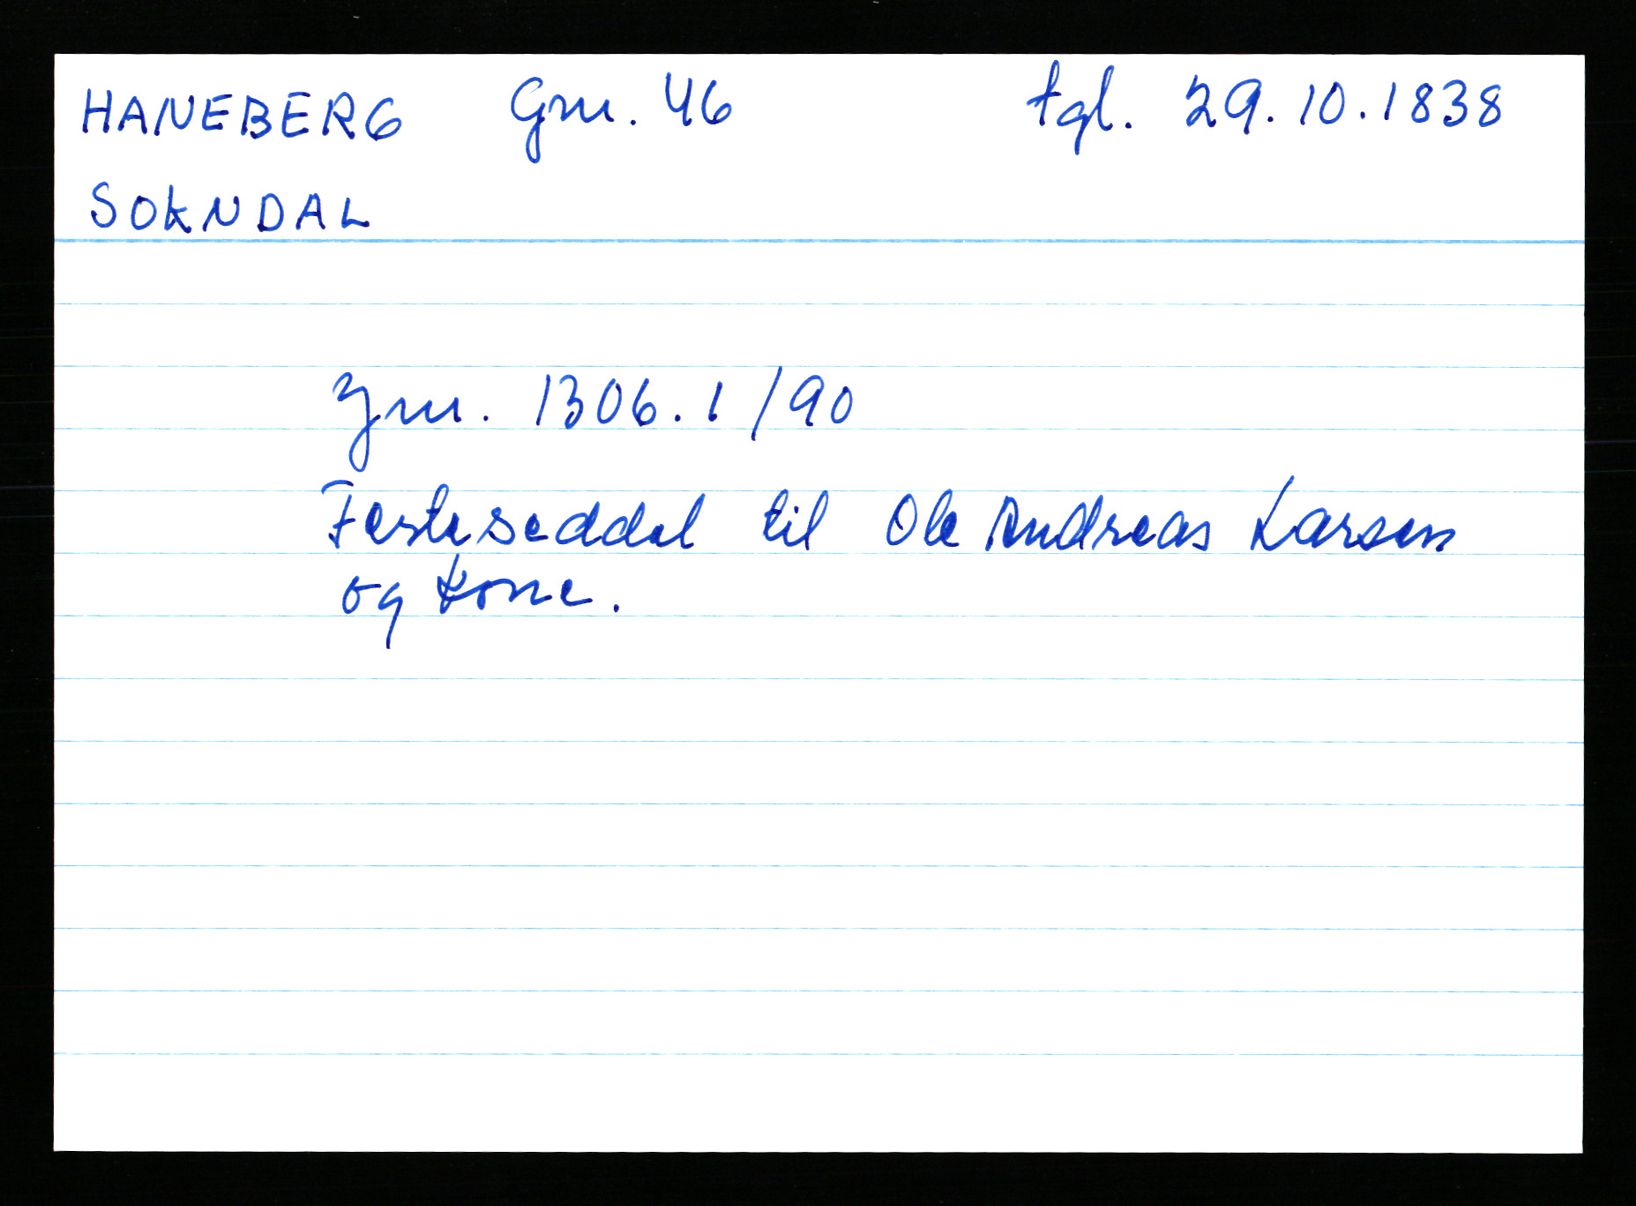 HANEBERG Gnr. 46 tgl. 29.10.1838
SOKNDAL
Jnr. 1306.1/90
Festeseddel til Ole Andreas Larsen
og kone.